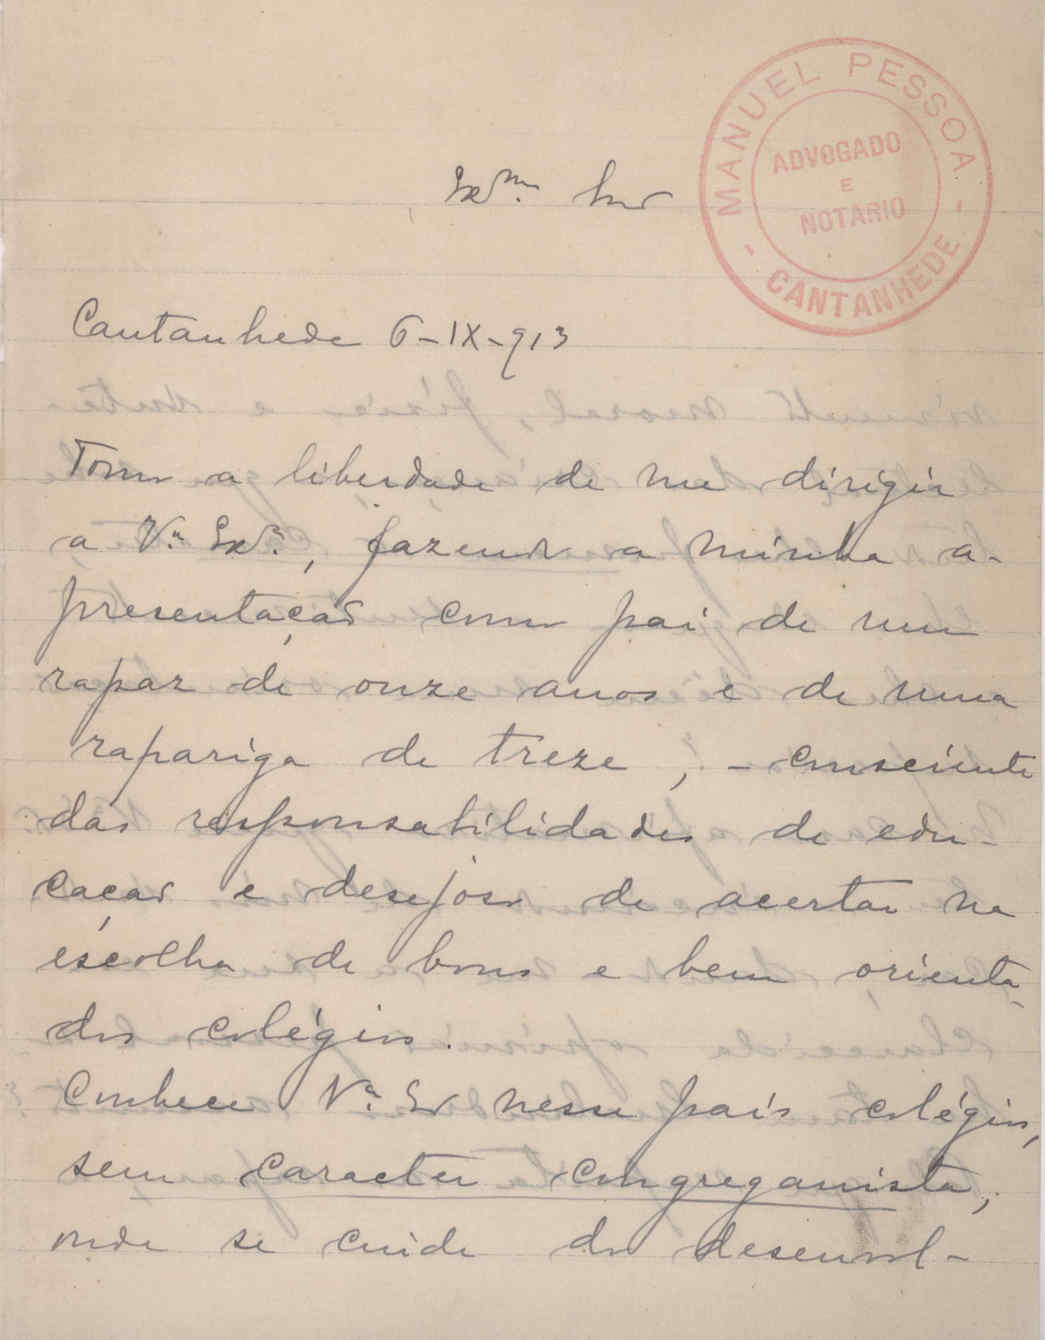 MANUEL PESSOA
ADVOGADO
E
NOTARIO
- CANTANHEDE -
Exmo. Snr
Cantanhede 6-IX-913
Tomo a liberdade de me dirigir
a V.ª Ex.ª, fazendo a minha a-
presentação como pai de um
rapaz de onze anos e de uma
rapariga de treze, - consciente
das responsabilidades de edu-
cação e desejoso de acertar na
escolha de bons e bem orienta-
dos colégios.
Conhece V.ª Ex nesse país colégios,
sem caracter congreganista,
onde se cuide do desenvol-